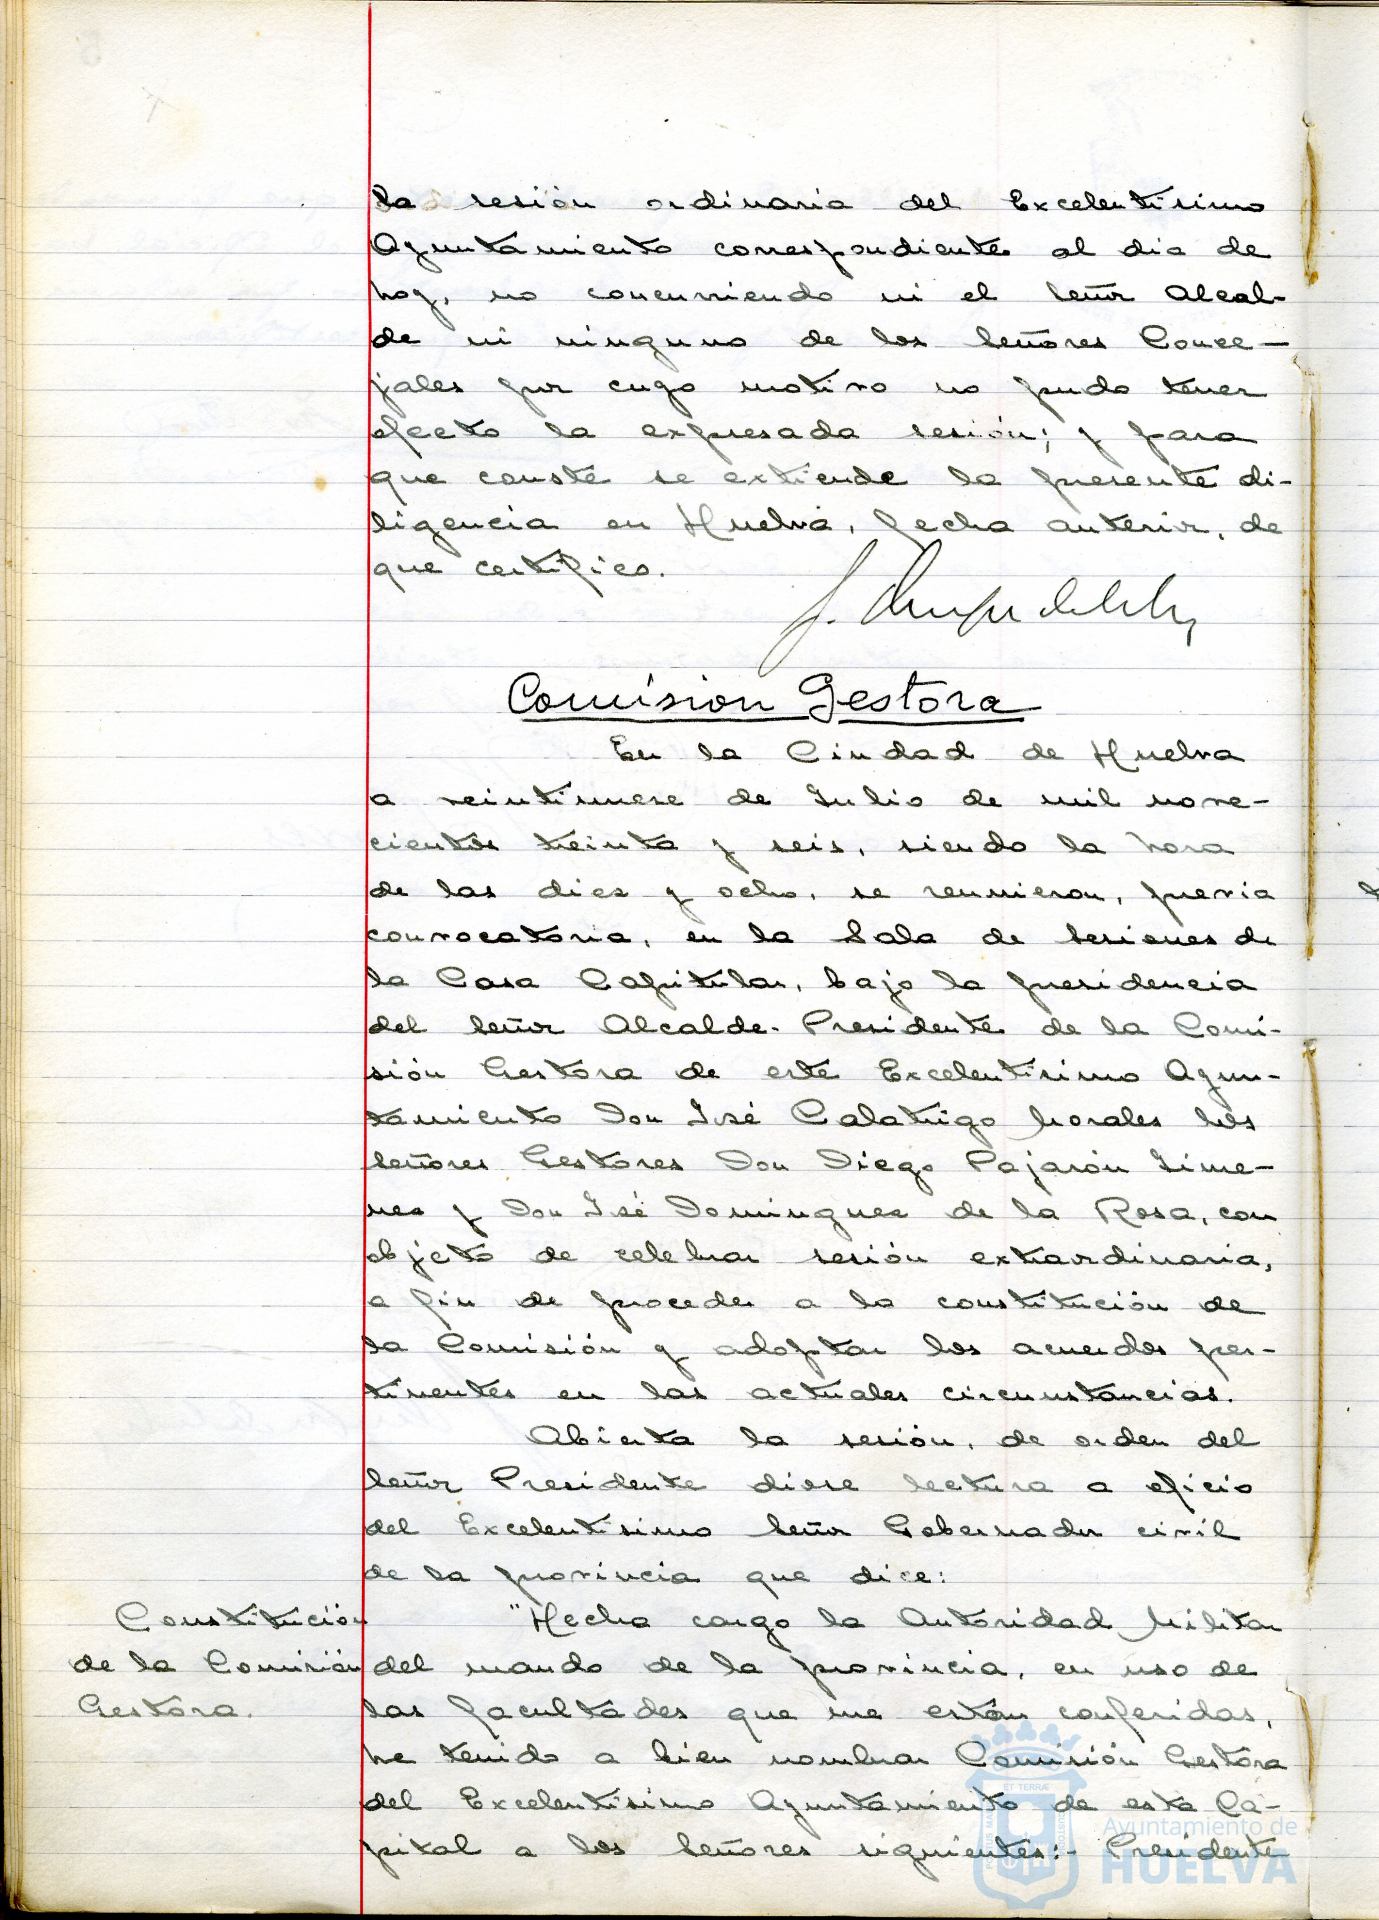 la sesión ordinaria del Excelentísimo
Ayuntamiento correspondiente al dia de
hoy, no concurriendo ni el Señor Alcal-
de ni ninguno de los Señores Conce-
jales por cuyo motivo no pudo tener
efecto la expresada sesión; y para
que conste se extiende la presente di-
ligencia en Huelva, fecha anterior, de
que certifico.
Comisión Gestora
En la Ciudad de Huelva
a veintinueve de Julio de mil nove-
cientos treinta y seis, siendo la hora
de las diez y ocho, se reunieron, previa
convocatoria, en la Sala de Sesiones de
la Casa Capitular, bajo la presidencia
del Señor Alcalde-Presidente de la Comi-
sión Gestora de este Excelentísimo Ayun-
tamiento Don José Calatrigo Morales los
Señores Gestores Don Diego Pajarón Jime-
nez y Don José Dominguez de la Rosa, con
objeto de celebrar sesión extraordinaria,
a fin de proceder a la constitución de
la Comisión y adoptar los acuerdos per-
tinentes en las actuales circunstancias.
Abierta la sesión, de orden del
Señor Presidente diose lectura a oficio
del Excelentísimo Señor Gobernador civil
de la provincia que dice:
Constitución
de la Comisión
Gestora.
"Hecha cargo la Autoridad Militar
del mando de la provincia, en uso de
las facultades que me están conferidas,
he tenido a bien nombrar Comisión Gestora
del Excelentísimo Ayuntamiento de esta Ca-
pital a los Señores siguientes:- Presidente
ET TERRÆ
Ayuntamiento de
HUELVA